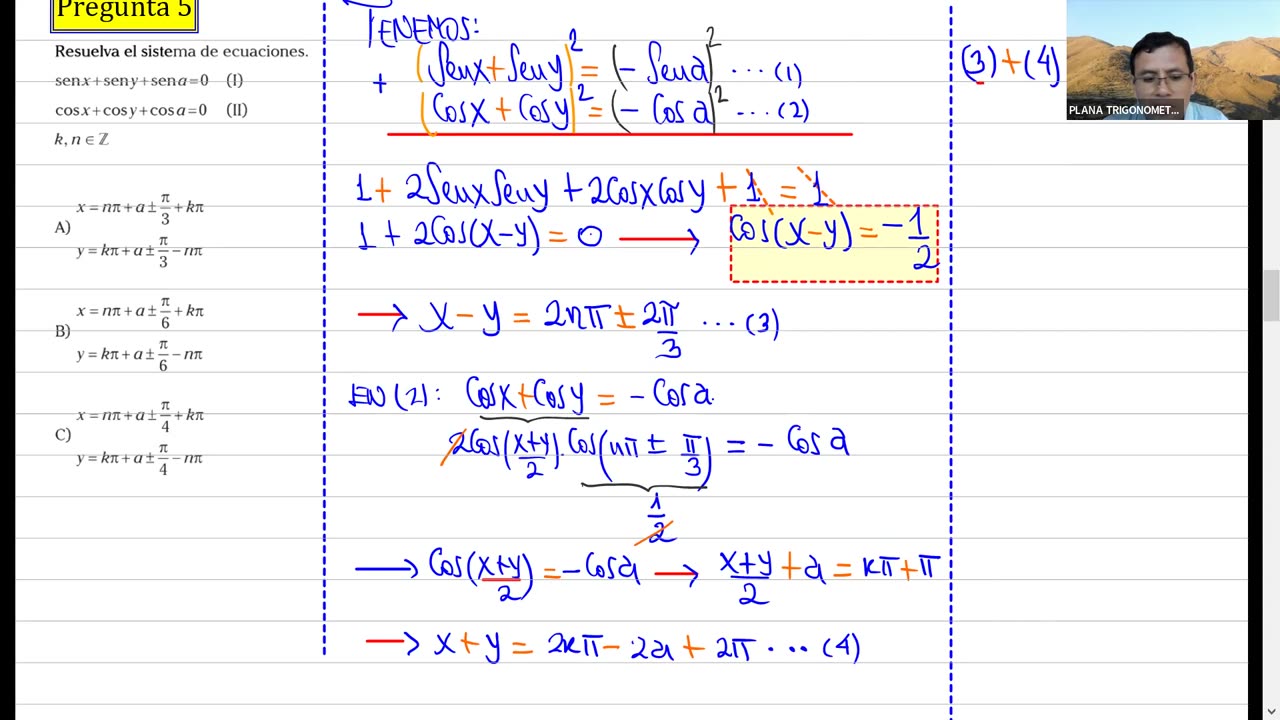 Pregunta 5
Resuelva el sistema de ecuaciones.
senx+seny+sena=0 (I)
cosx+cosy+cosa=0 (II)
k, n ∈ ℤ
A) x=nπ+a±π/3+kπ
y=kπ+a±π/3−nπ
B) x=nπ+a±π/6+kπ
y=kπ+a±π/6−nπ
C) x=nπ+a±π/4+kπ
y=kπ+a±π/4−nπ
TENEMOS:
+ (Senx+Seny)² = (−Sena)² ... (1)
(Cosx+Cosy)² = (−Cosa)² ... (2)
1 + 2SenxSeny + 2CosxCosy + 1 = 1
1 + 2Cos(x−y) = 0 ⟶ Cos(x−y) = −1/2
⟶ x − y = 2nπ ± 2π/3 ... (3)
EN (2): Cosx+Cosy = −Cosa.
2Cos(x+y/2).Cos(nπ ± π/3) = − Cosa
1/2
⟶ Cos(x+y/2) = −Cosa ⟶ x+y/2 + a = kπ+π
⟶ x+y = 2kπ − 2a + 2π ... (4)
(3)+(4)
PLANA TRIGONOMET...